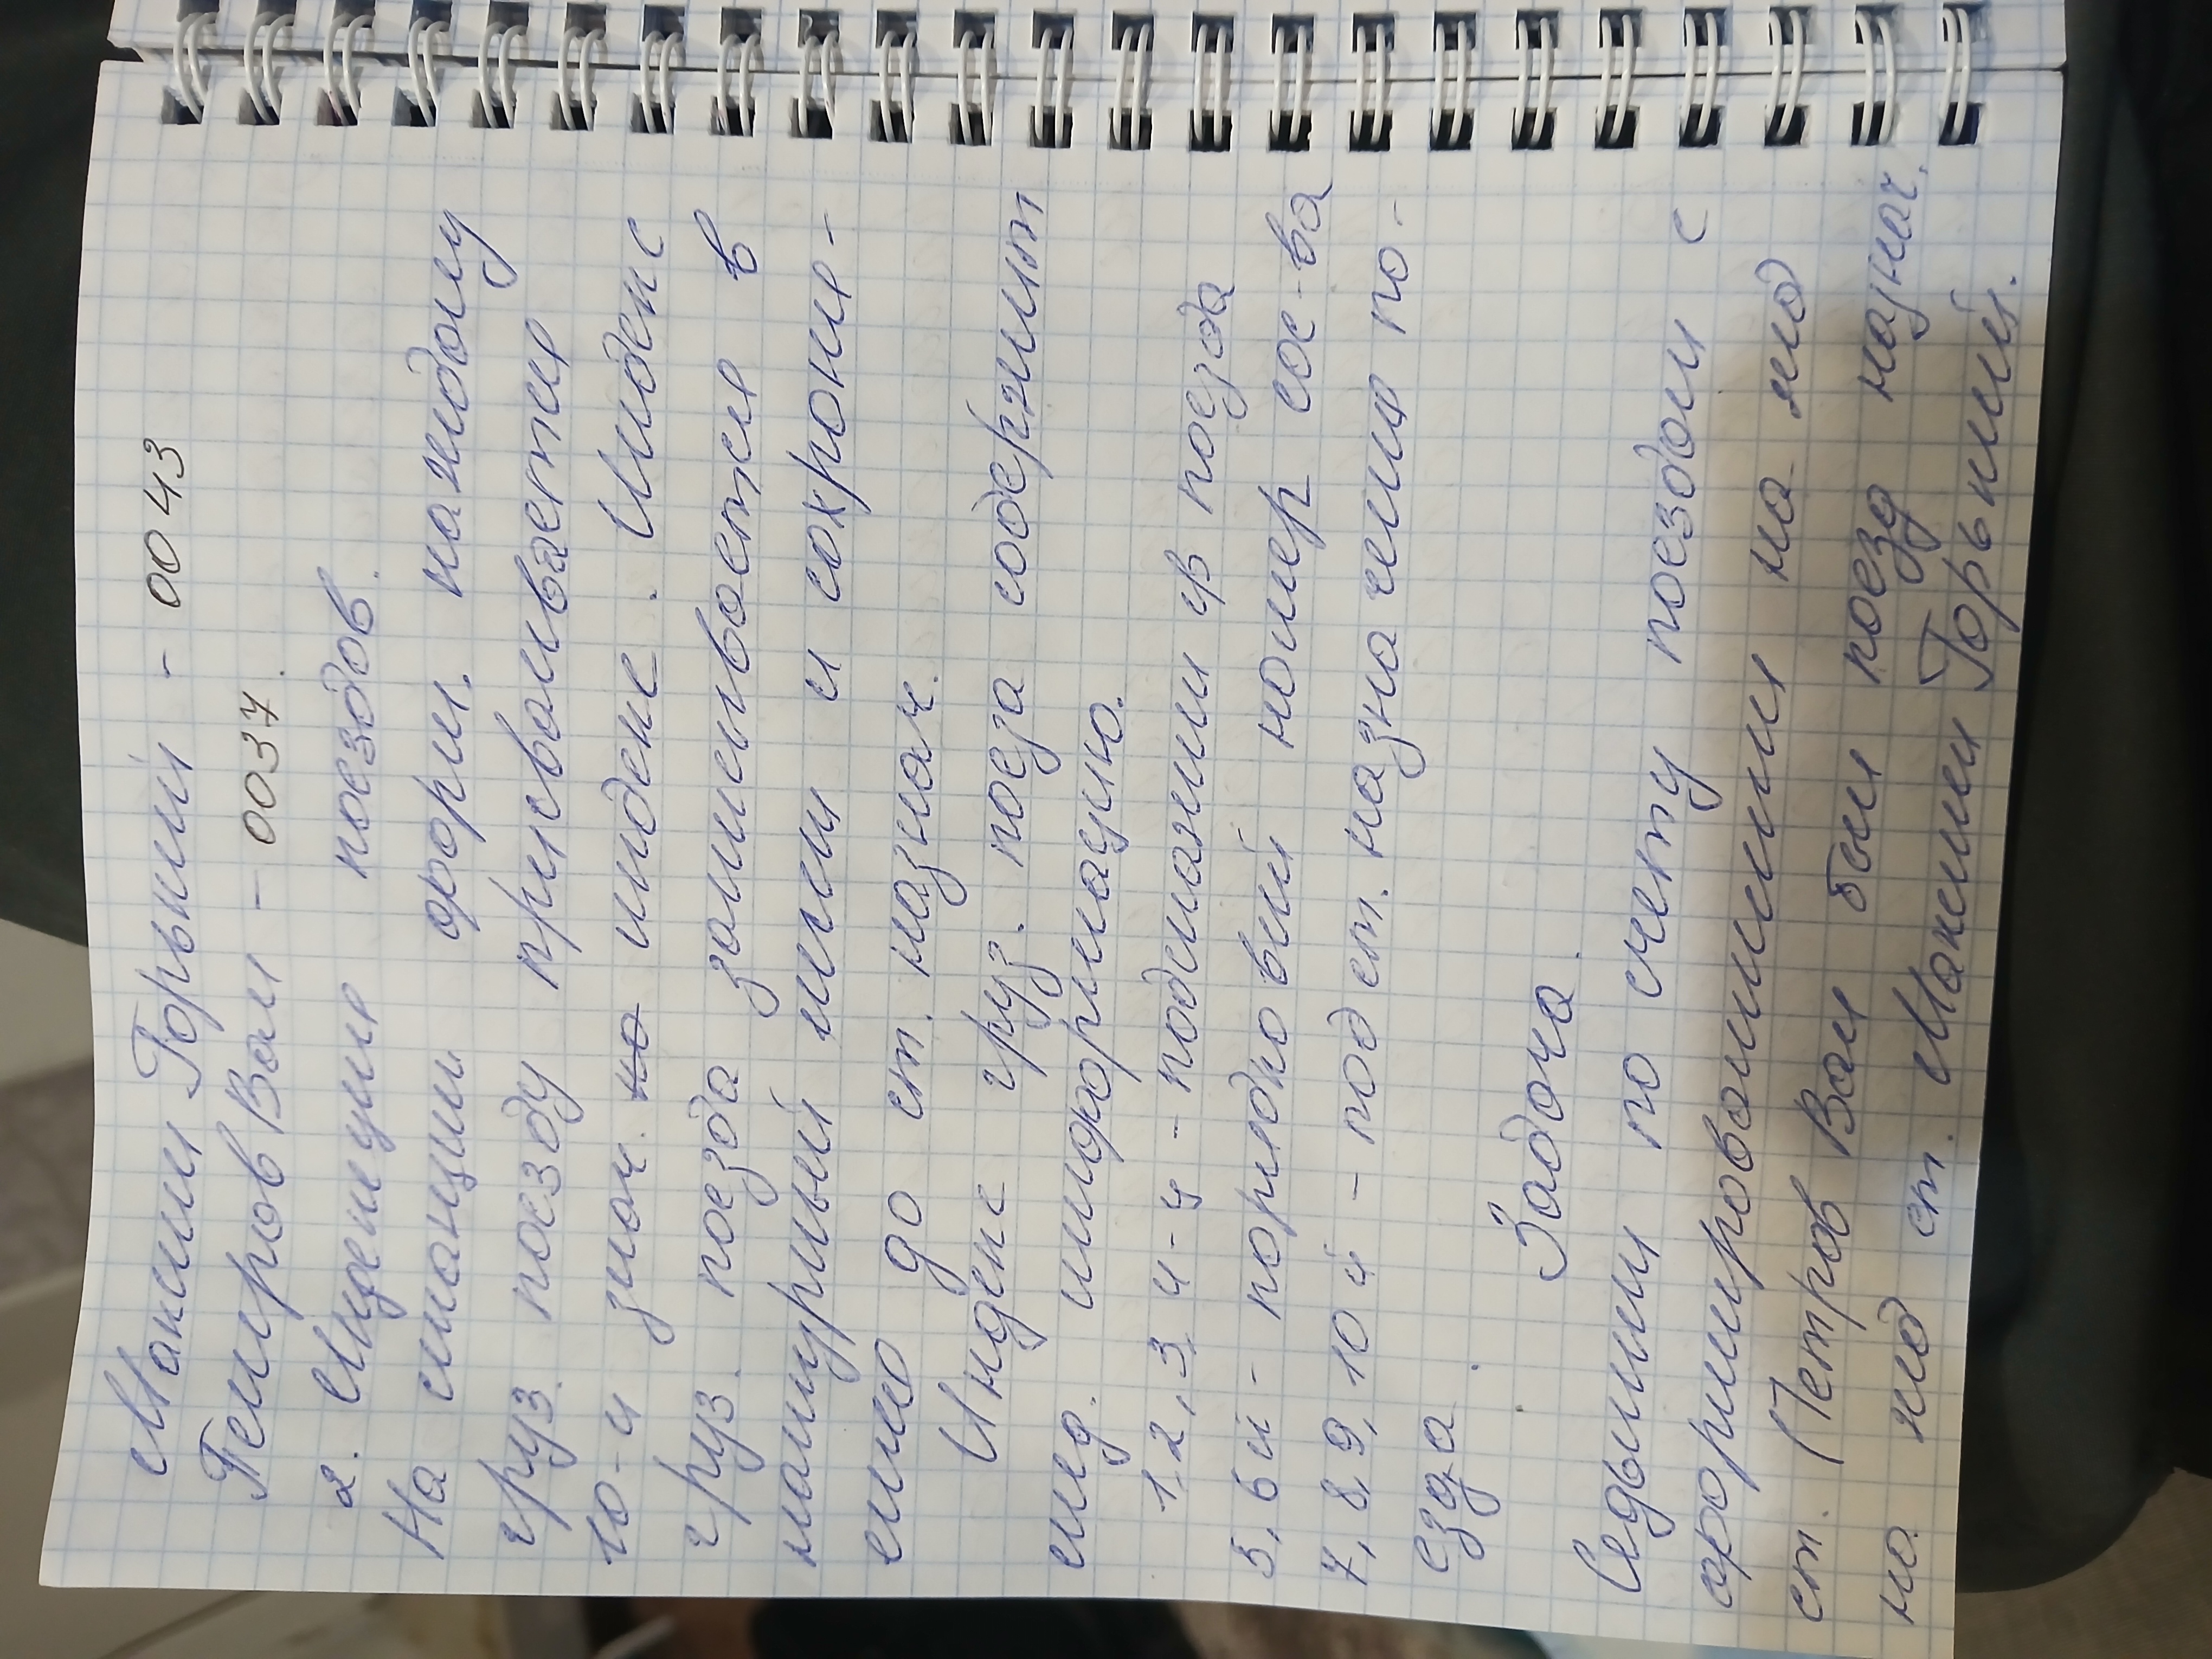 Максим Горький - 0043
Петров Вал - 0037.
2. Индексация поездов.
На станции форм. каждому
груз. поезду присваивается
10-и знач. индекс. Индекс
груз. поезда записывается в
натурный лист и сохраня-
емо до ст. назнач.
Индекс груз. поеза содержит
след. информацию.
1, 2, 3, 4-ч - под станции ф поезда
5, 6 й - порядковый номер сос-ва
7, 8, 9, 10 й - под ст. назначения по-
езда.
Задача.
Седьмым по счету поездом с
формированиия на под
ст. (Петров Вал был поезд назнач.
на под ст. Максим Горький.